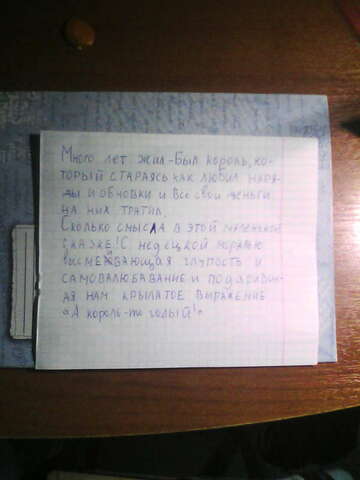 Много лет жил-был король, ко-
торый стараясь как любил наря-
ды и обновки и все свои деньги
на них тратил.
Сколько смысла в этой маленькой
сказке! С недецкой моралью
высмеживающая глупость и
самовалюбавание и подаривш-
ая нам крылатое выражение
"А король-то голый!"